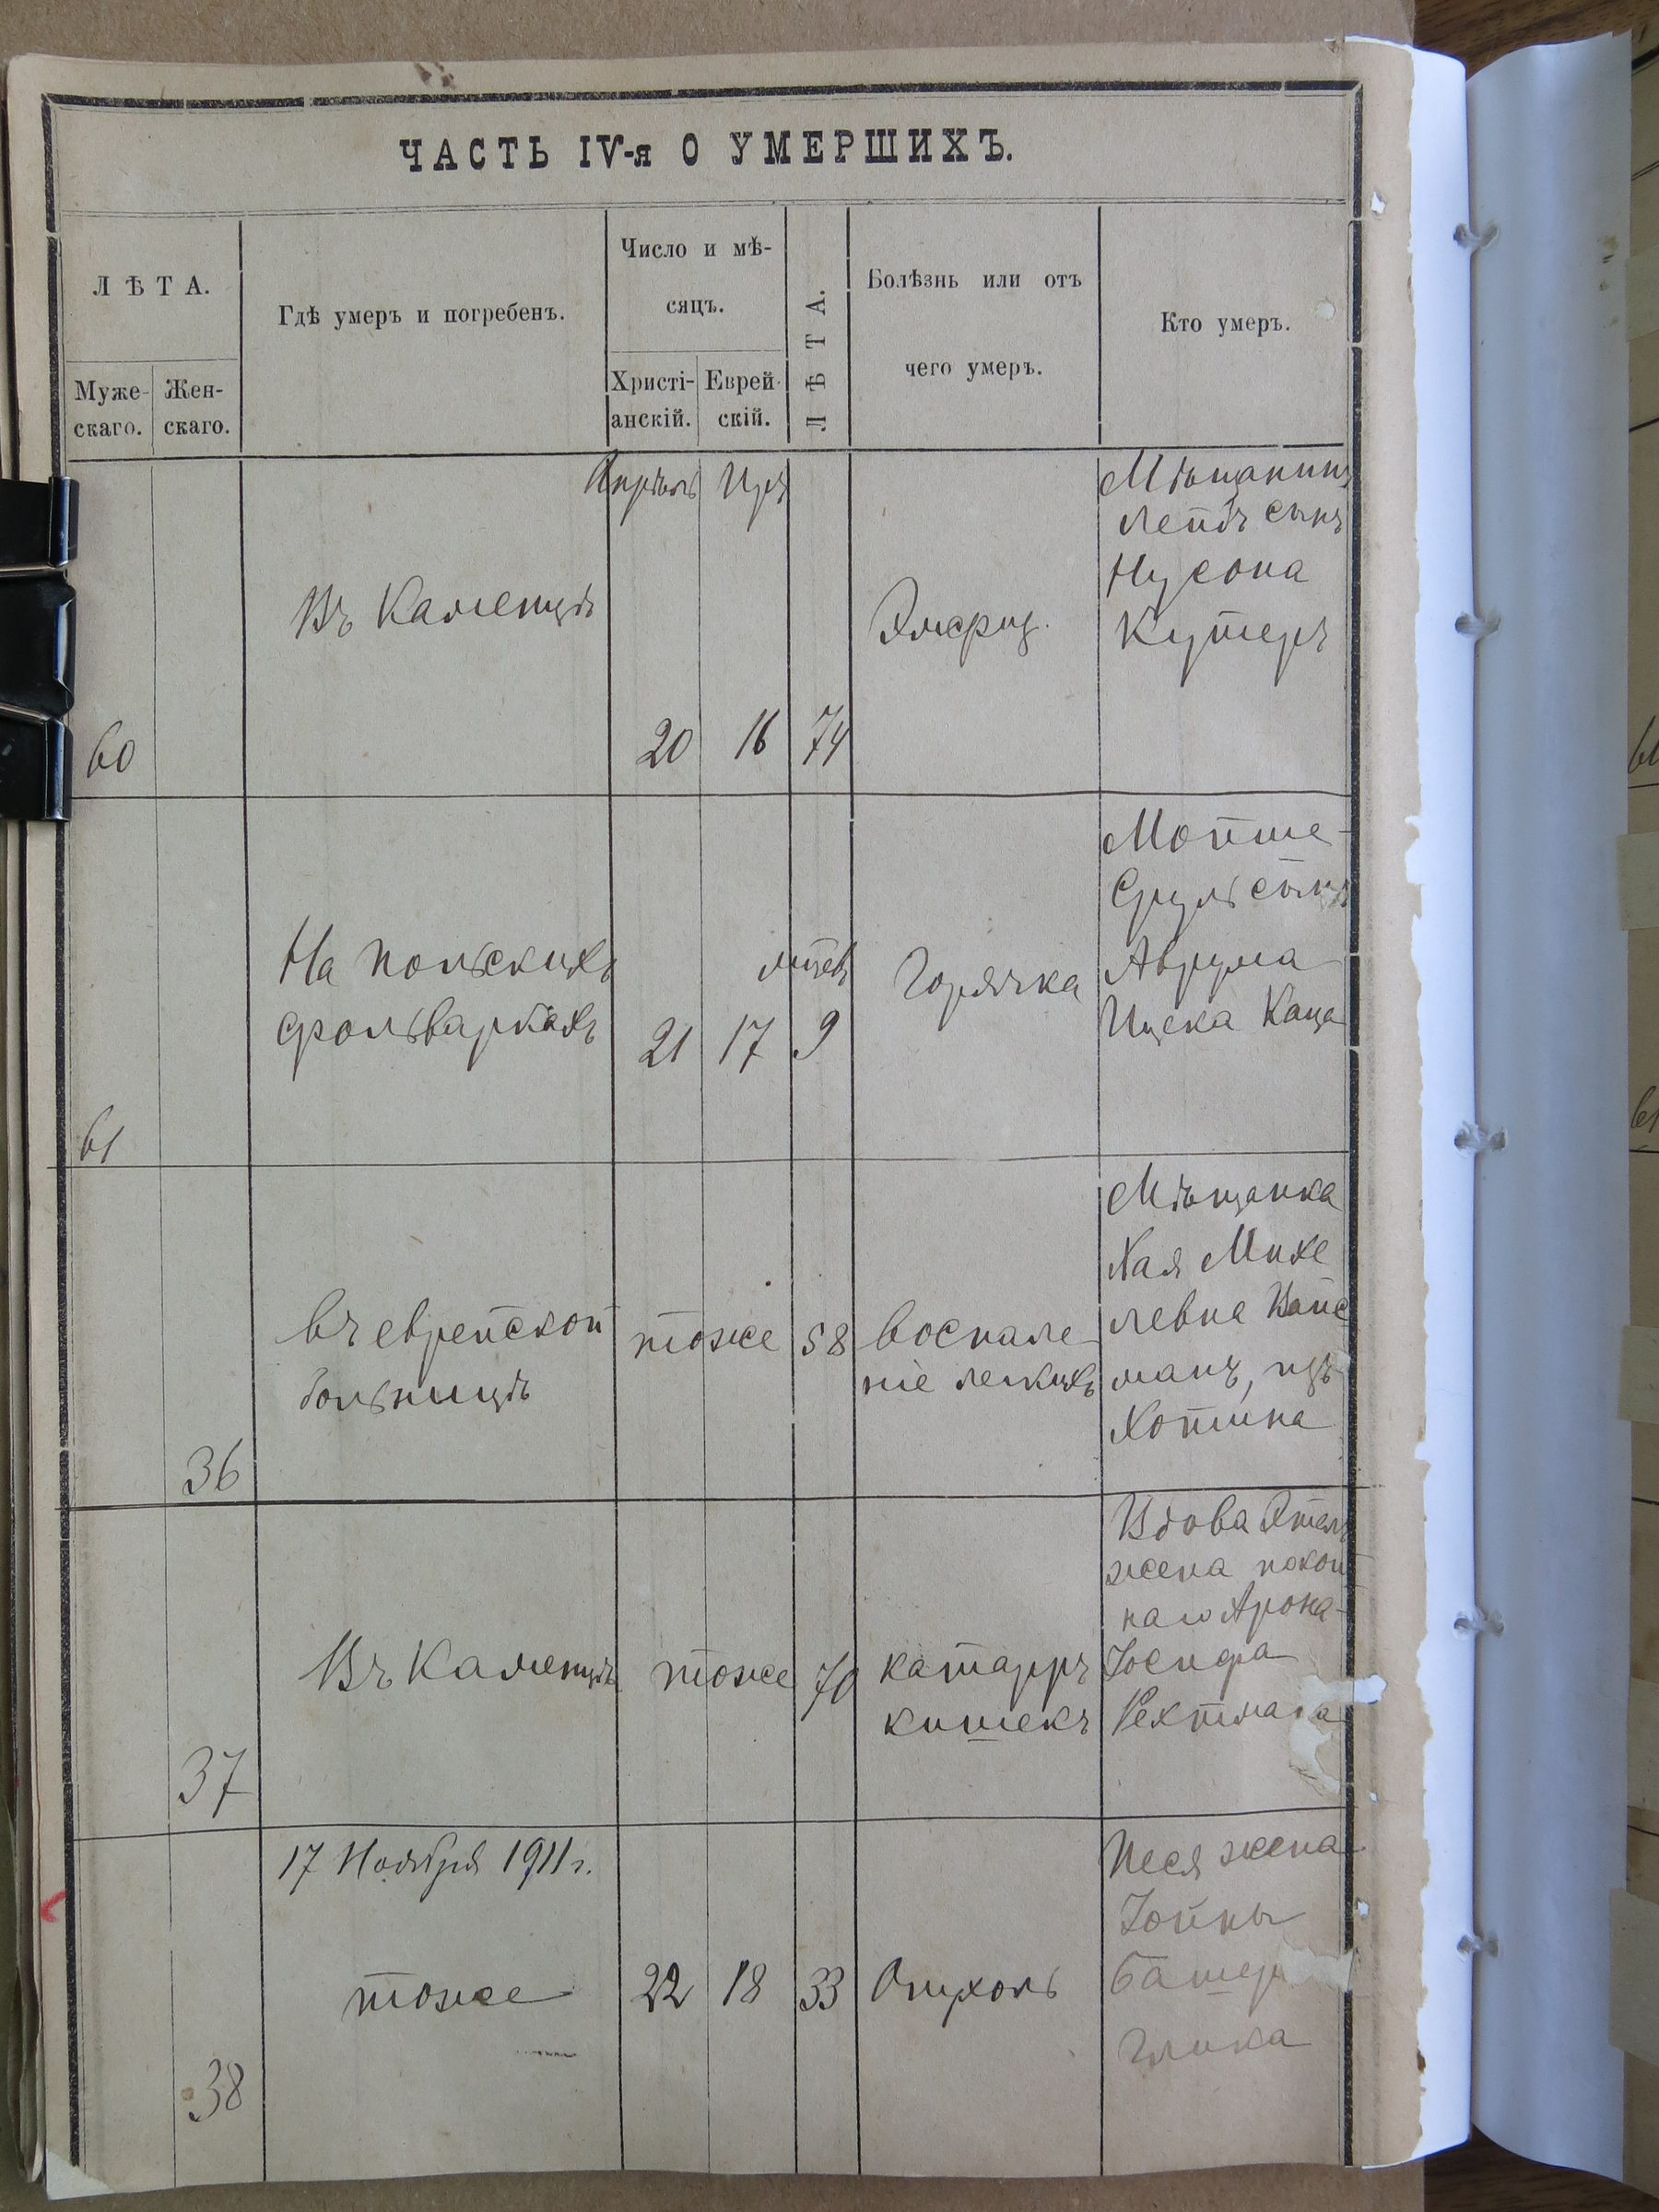 ЧАСТЬ IV-я О УМЕРШИХЪ.
ЛѢТА.
Муже-
скаго.
Жен-
скаго.
Гдѣ умеръ и погребенъ.
Число и мѣ-
сяцъ.
Христі-
анскій.
Еврей-
скій.
ЛѢТА.
Болѣзнь или отъ
чего умеръ.
Кто умеръ.
Апрѣль Ира
60
Въ Каменцѣ
20 16 74
Мѣщанинъ
Лейбъ сынъ
Нусона
Кушеръ
61
На польскихъ
фольваркахъ
21 17
9
Горячка
Мойше-
Сруль сынъ
Аврума
Ицека Каца
36
въ еврейской
больницѣ
тоже
58
воспале
ніе легкихъ
Мѣщанка
Хая Михе
левна
манъ, изъ
Хотина
37
Въ Каменцѣ
тоже
70
катарръ
кишекъ
Вдова
жена покой
наго Арона-
Іосифа
Рехтмана
38
17 Ноября 1911 г.
тоже
22 18 33
Опухоль
Песя жена
Іойны